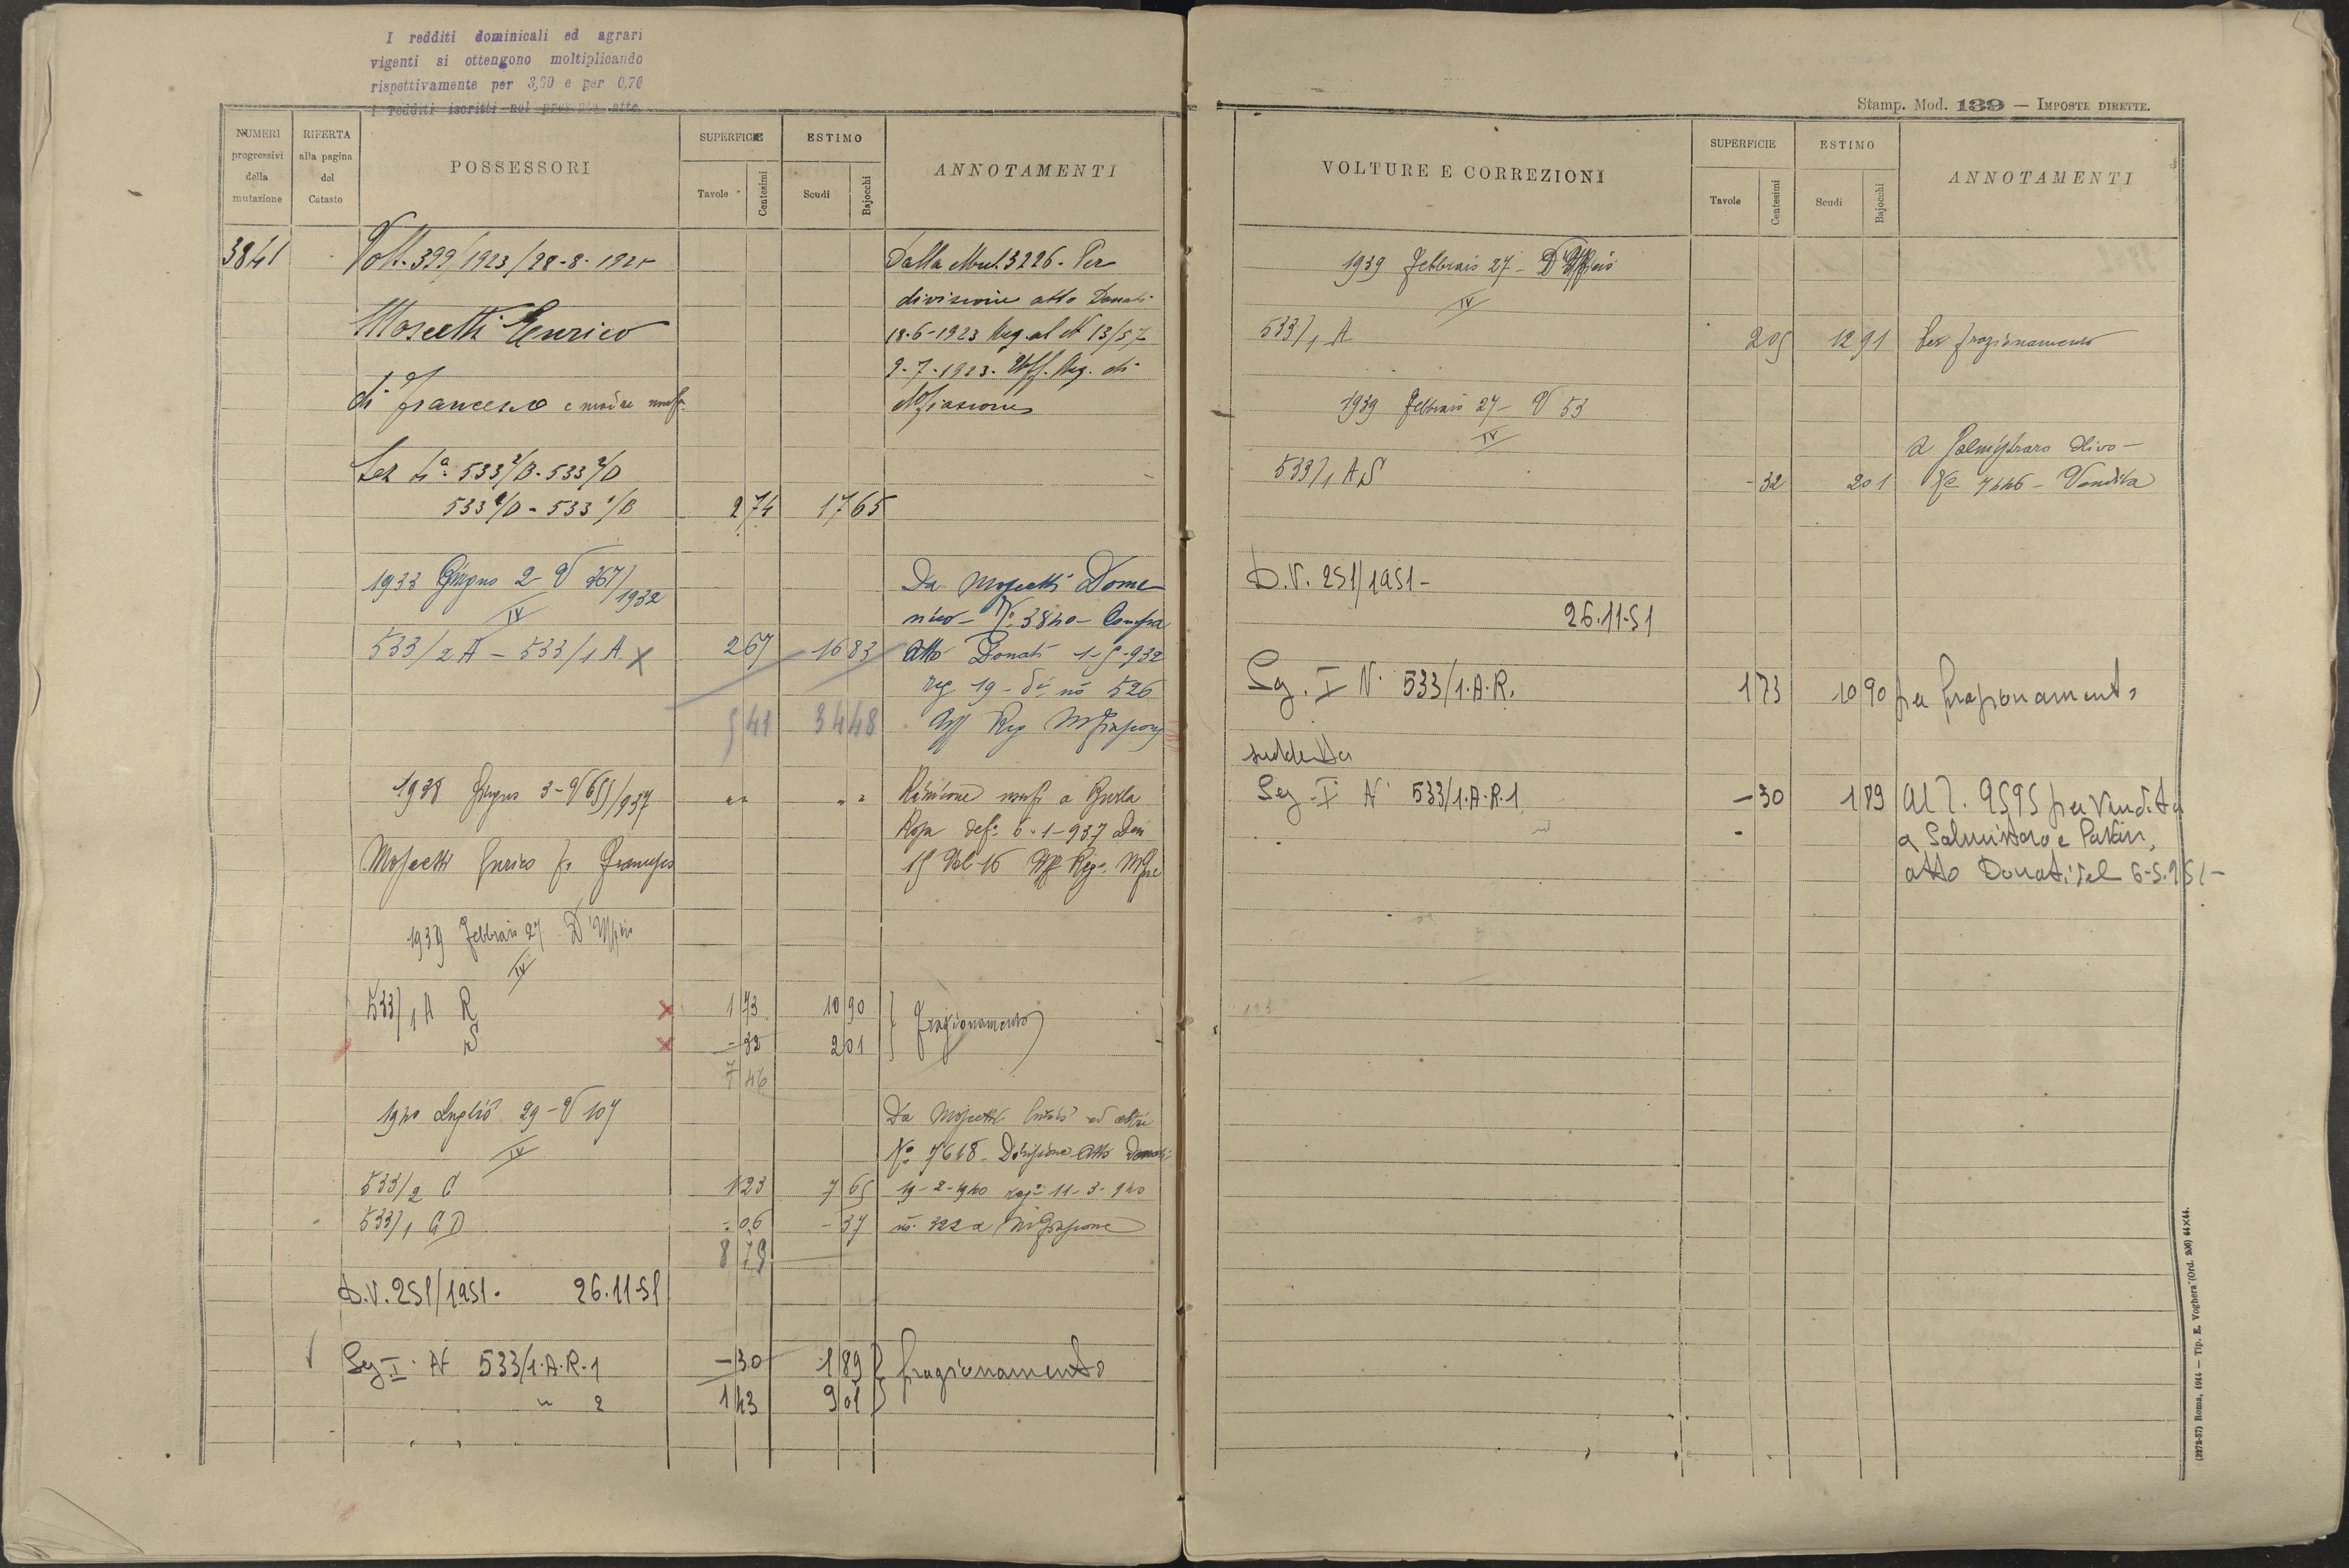 I redditi dominicali ed agrari
vigenti si ottengono moltiplicando
rispettivamente per 3,60 e per 0,70
i redditi iscritti nel presente atto.
NUMERI progressivi della mutazione
RIFERTA alla pagina del Catasto
POSSESSORI
SUPERFICIE
Tavole Centesimi
ESTIMO
Scudi Bajocchi
ANNOTAMENTI
3841 Volt. 399/1923/28-8-192 Dalla Mut. 3226. Per
divisione atto Donati
Moscetti Enrico 18-6-1923 Reg. al N 13/57
9-7-1923. Uff. Reg. di
di Francesco e madre usuf.
Sez 1a 533²/B - 533²/D
533²/D - 533¹/B 2 74 17 65
1933 Giugno 2 V 267/1932 Da Moscetti Dome
IV nico - No 3840 - Compra
533/2 A - 533/1 A X 2 67 16 83 Atto Donati 1-5-932
reg 19 - do no 526
5 41 34 48 Uff Reg
1938 Giugno 3 - V 655/937 " " " " Riunione usufr a
Rosa def. 6-1-937 Den
Moscetti Enrico fu Francesco 15 Vol 16 Uff Reg.
1939 Febbraio 27 D'Ufficio
IV
533/1 A R X 1 73 10 90
S X - 32 2 01 frazionamento
7 46
1940 Luglio 29 - V 107 Da Moscetti ed altri
IV No 7618 - Divisione Atto Donati
533/2 C 1 23 7 65 19-2-940 rego 11-3-940
533/1 G D - 06 - 37 no 322 a
8 79
D.V. 251/1951. 26.11.51
Sez I. N 533/1.A.R.1 - 30 1 89 frazionamento
" 2 1 43 9 01
Stamp. Mod. 139 — IMPOSTE DIRETTE.
VOLTURE E CORREZIONI
SUPERFICIE
Tavole Centesimi
ESTIMO
Scudi Bajocchi
ANNOTAMENTI
1939 Febbraio 27 - D'Ufficio
IV
533/1 A 2 05 12 91 Per frazionamento
1939 Febbraio 27 - V 53
IV
a Salmistraro Olivo -
533/1 A S - 32 2 01 No 7446 - Vendita
D.V. 251/1951 -
26.11.51
Sez. I N. 533/1.A.R. 1 73 10 90 per frazionamento
suddetta
Sez. I N. 533/1.A.R.1 - 30 1 89 Al N. 9595 per Vendita
a Salmistraro e
atto Donati del 6-5-951 -
(3272-57) Roma, 1914 — Tip. E. Voghera (Ord. 206) 64×44.